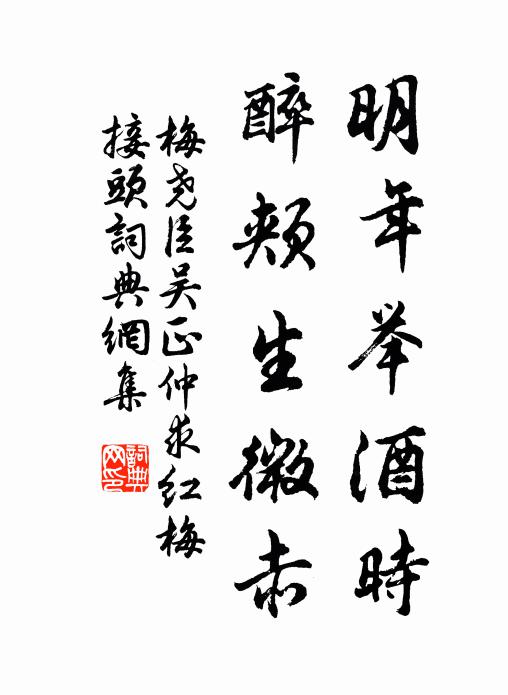 明年举酒時
醉頰生微赤
梅尧臣吴正仲求红梅
接頭詞典網集
詞典网印